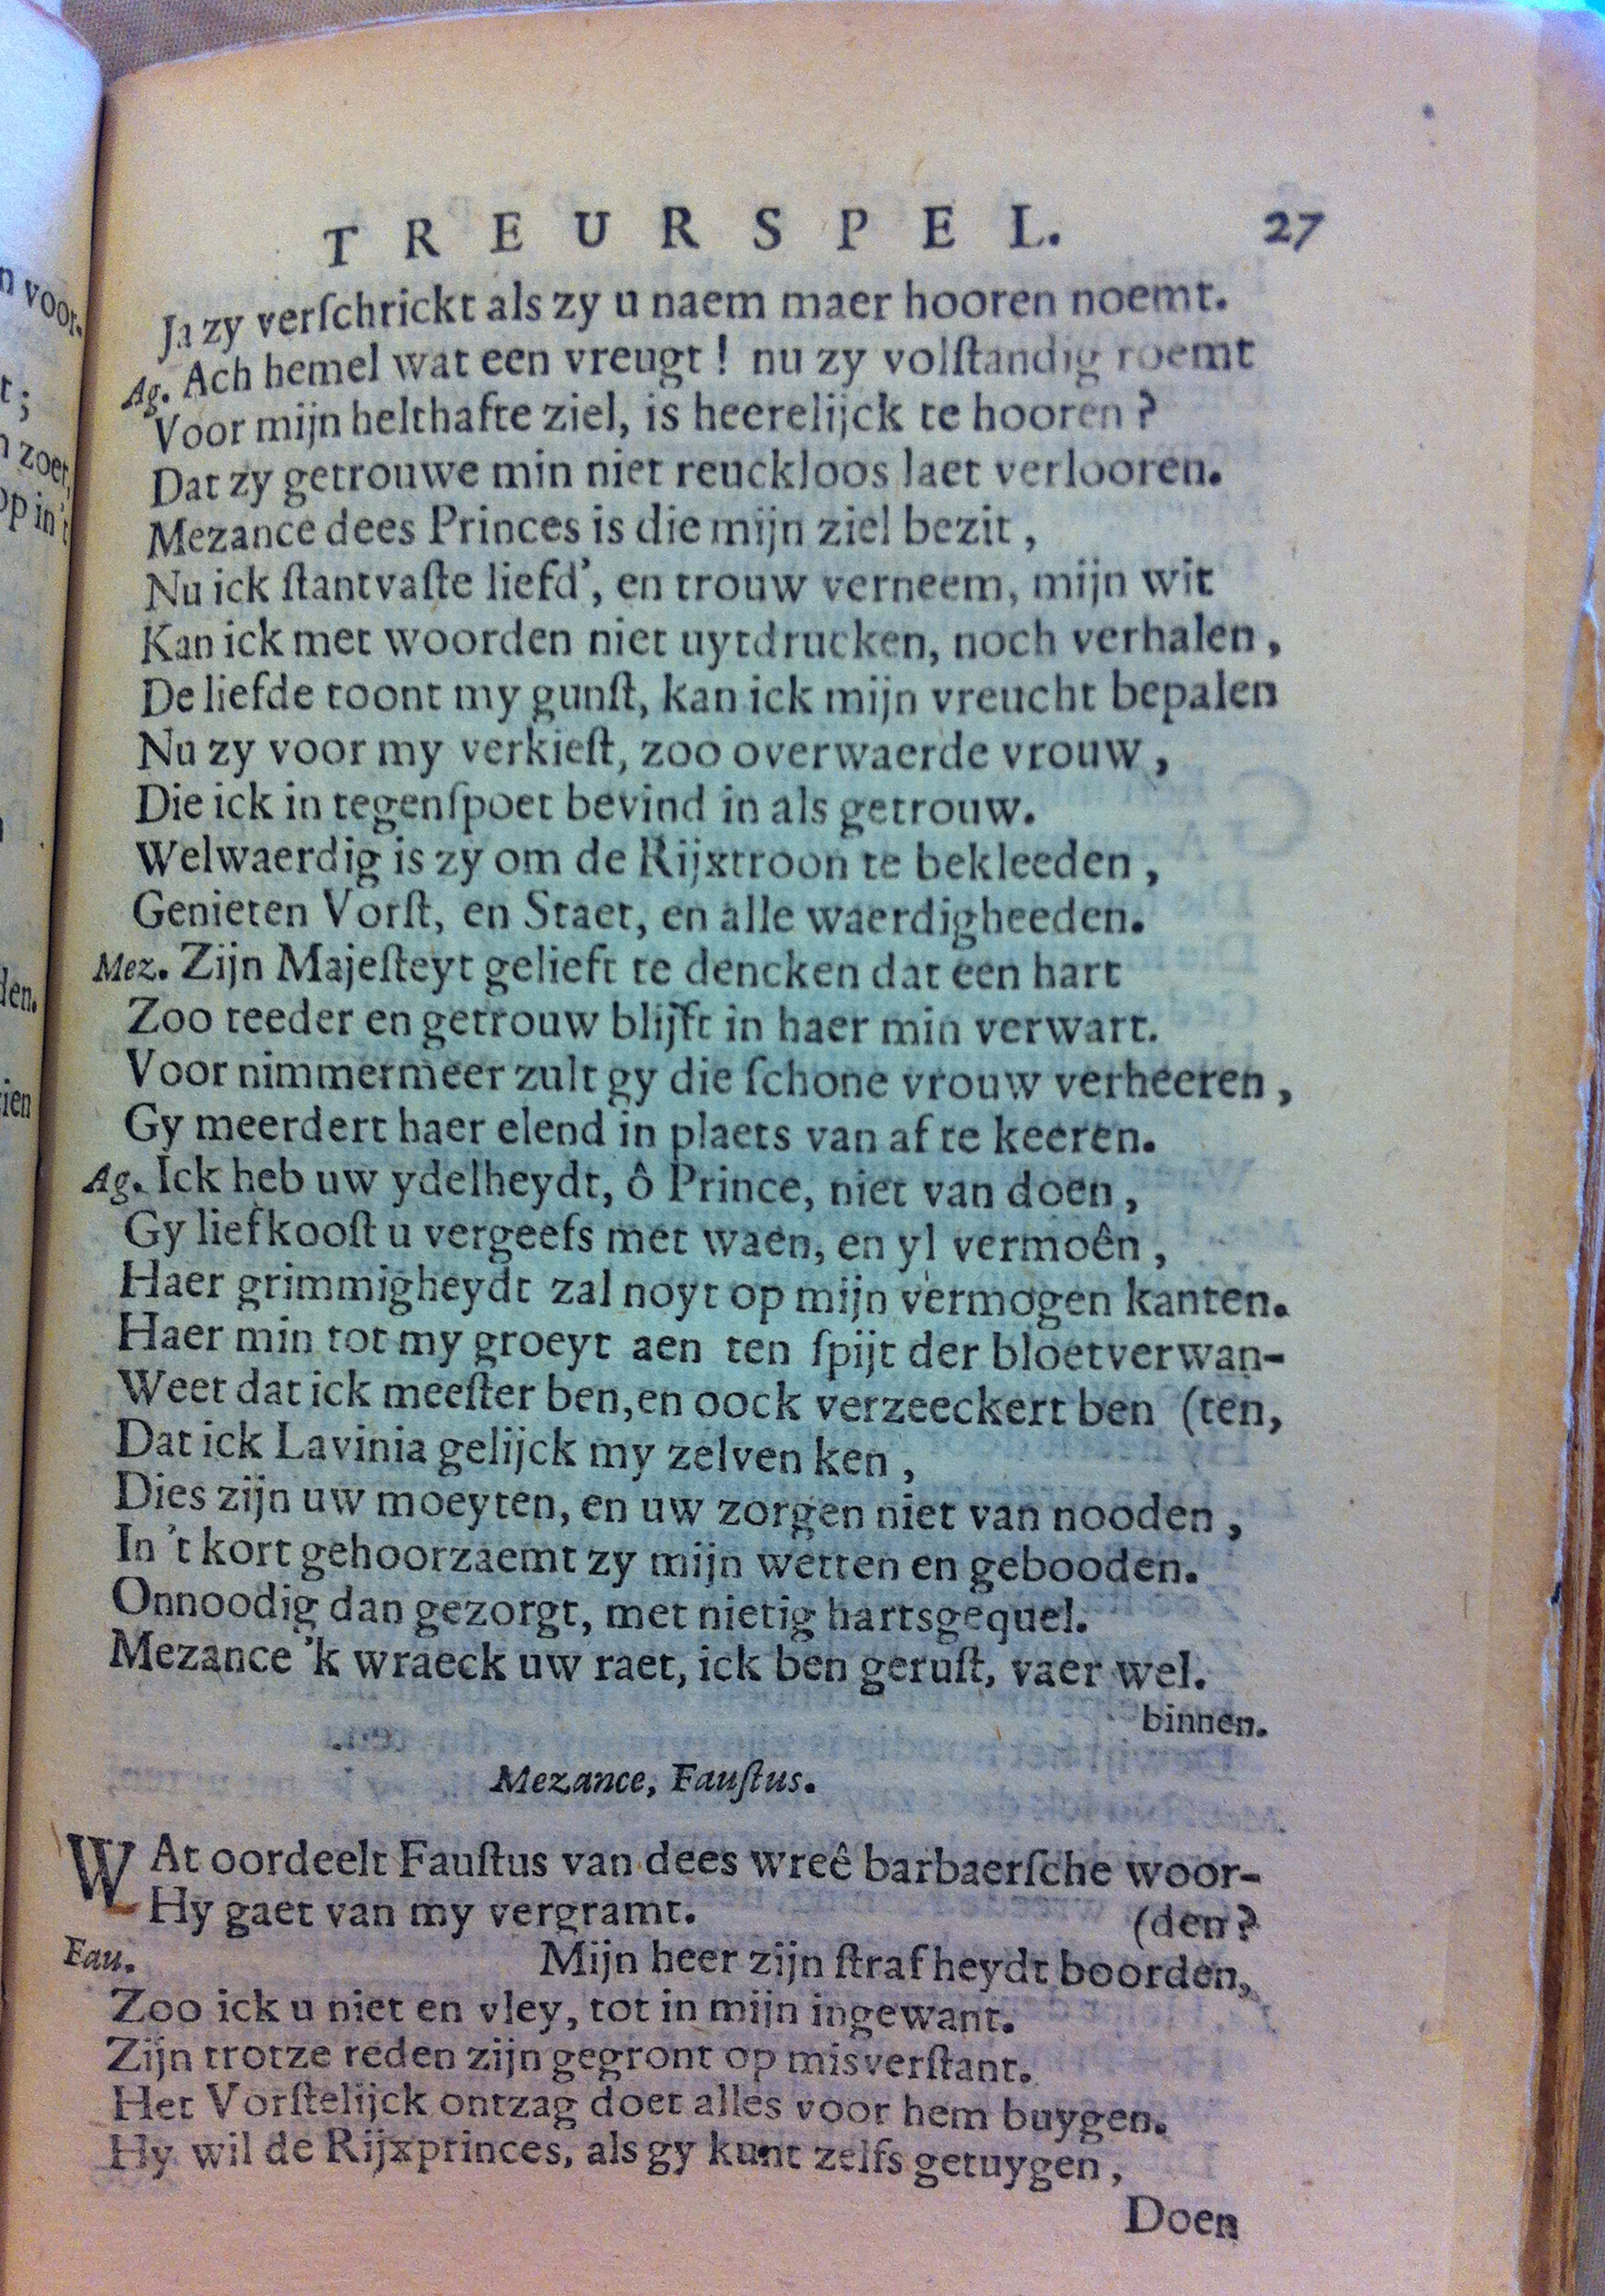 TREURSPEL. 27
Ja zy verſchrickt als zy u naem maer hooren noemt.
Ag. Ach hemel wat een vreugt! nu zy volſtandig roemt
Voor mijn helthafte ziel, is heerelijck te hooren?
Dat zy getrouwe min niet reuckloos laet verlooren.
Mezance dees Princes is die mijn ziel bezit,
Nu ick ſtantvaſte liefd', en trouw verneem, mijn wit
Kan ick met woorden niet uytdrucken, noch verhalen,
De liefde toont my gunſt, kan ick mijn vreucht bepalen
Nu zy voor my verkieſt, zoo overwaerde vrouw,
Die ick in tegenſpoet bevind in als getrouw.
Welwaerdig is zy om de Rijxtroon te bekleeden,
Genieten Vorſt, en Staet, en alle waerdigheeden.
Mez. Zijn Majeſteyt gelieft te dencken dat een hart
Zoo teeder en getrouw blijft in haer min verwart.
Voor nimmermeer zult gy die ſchone vrouw verheeren,
Gy meerdert haer elend in plaets van af te keeren.
Ag. Ick heb uw ydelheydt, ô Prince, niet van doen,
Gy liefkooſt u vergeefs met waen, en yl vermoên,
Haer grimmigheydt zal noyt op mijn vermogen kanten.
Haer min tot my groeyt aen ten ſpijt der bloetverwan-
Weet dat ick meeſter ben, en oock verzeeckert ben (ten,
Dat ick Lavinia gelijck my zelven ken,
Dies zijn uw moeyten, en uw zorgen niet van nooden,
In 't kort gehoorzaemt zy mijn wetten en gebooden.
Onnoodig dan gezorgt, met nietig hartsgequel.
Mezance 'k wraeck uw raet, ick ben geruſt, vaer wel.
binnen.
Mezance, Fauſtus.
WAt oordeelt Fauſtus van dees wreê barbaerſche woor-
Hy gaet van my vergramt. (den?
Fau. Mijn heer zijn ſtrafheydt boorden,
Zoo ick u niet en vley, tot in mijn ingewant.
Zijn trotze reden zijn gegront op misverſtant.
Het Vorſtelijck ontzag doet alles voor hem buygen.
Hy wil de Rijxprinces, als gy kunt zelfs getuygen,
Doen
n voor.
t;
n zoet,
op in't
den.
ien